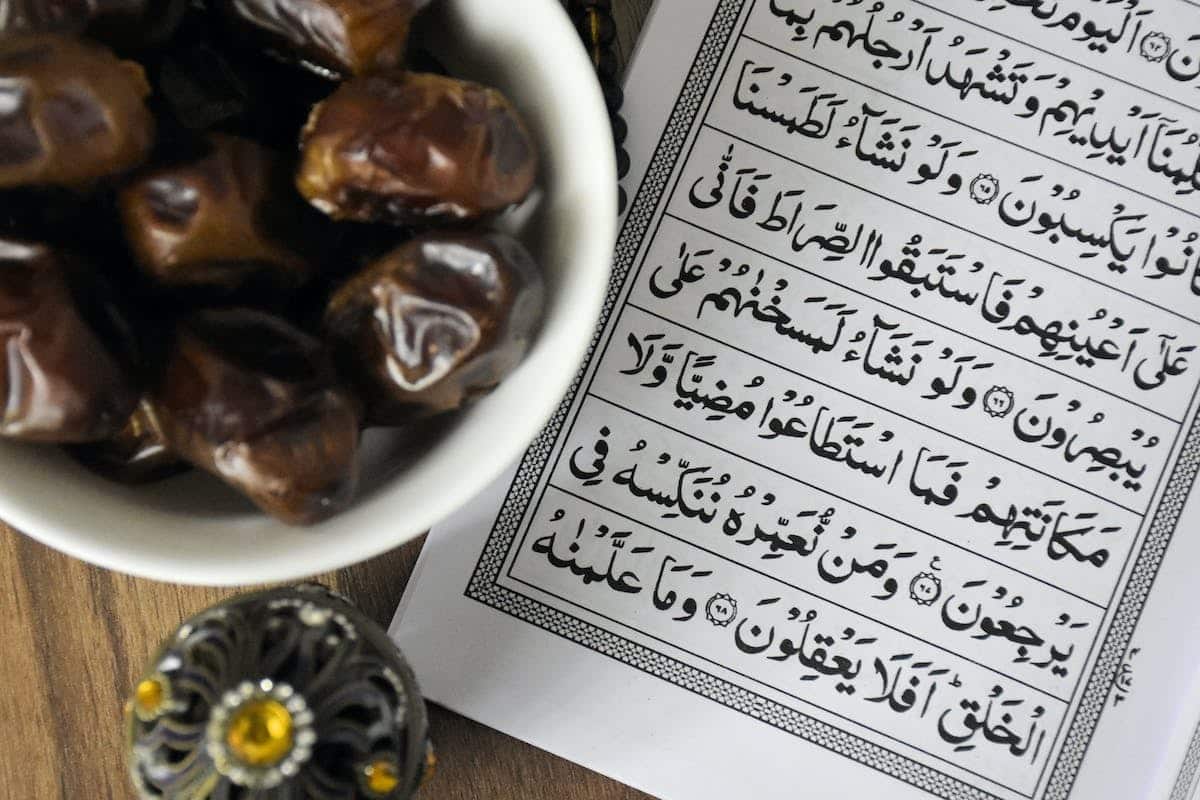 اَلْيَوْمَ
اَيْدِيْهِمْ وَتَشْهَدُ اَرْجُلُهُمْ بِمَا
انُوْا يَكْسِبُوْنَ ۝۶۵ وَلَوْ نَشَآءُ لَطَمَسْنَا
عَلٰٓى اَعْيُنِهِمْ فَاسْتَبَقُوا الصِّرَاطَ فَاَنّٰى
يُبْصِرُوْنَ ۝۶۶ وَلَوْ نَشَآءُ لَمَسَخْنٰهُمْ عَلٰى
مَكَانَتِهِمْ فَمَا اسْتَطَاعُوْا مُضِيًّا وَّلَا
يَرْجِعُوْنَ ۝۶۷ وَمَنْ نُّعَمِّرْهُ نُنَكِّسْهُ فِى
الْخَلْقِ ؕ اَفَلَا يَعْقِلُوْنَ ۝۶۸ وَمَا عَلَّمْنٰهُ